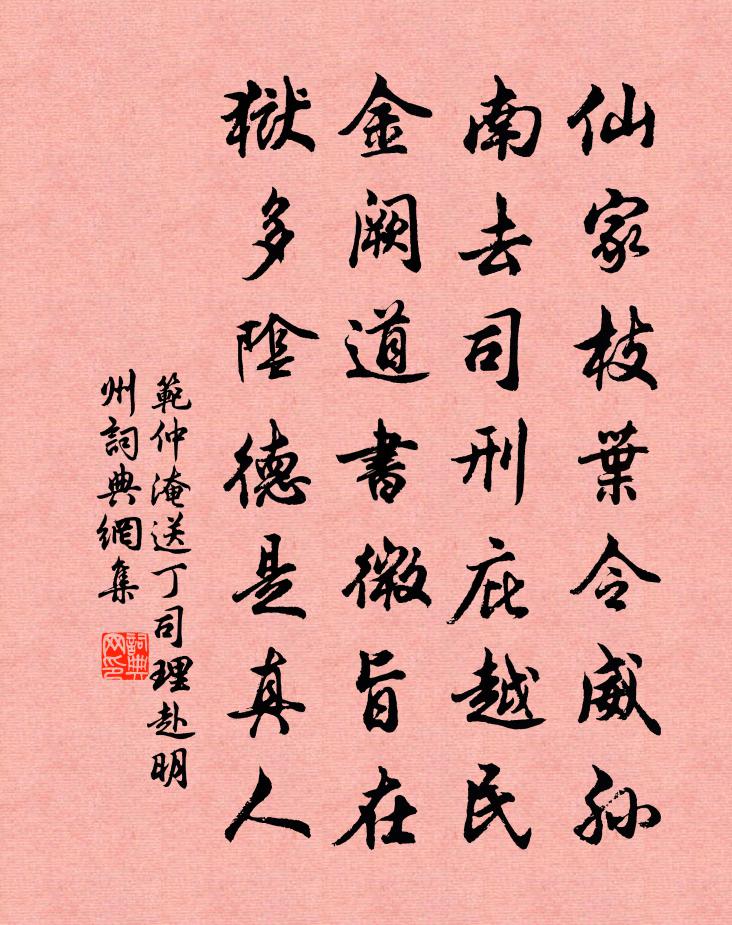 仙家枝葉令威孫
南去司刑庇越民
金闕道書微旨在
獄多陰德是真人
範仲淹送丁司理赴明
州詞典網集
詞典網印